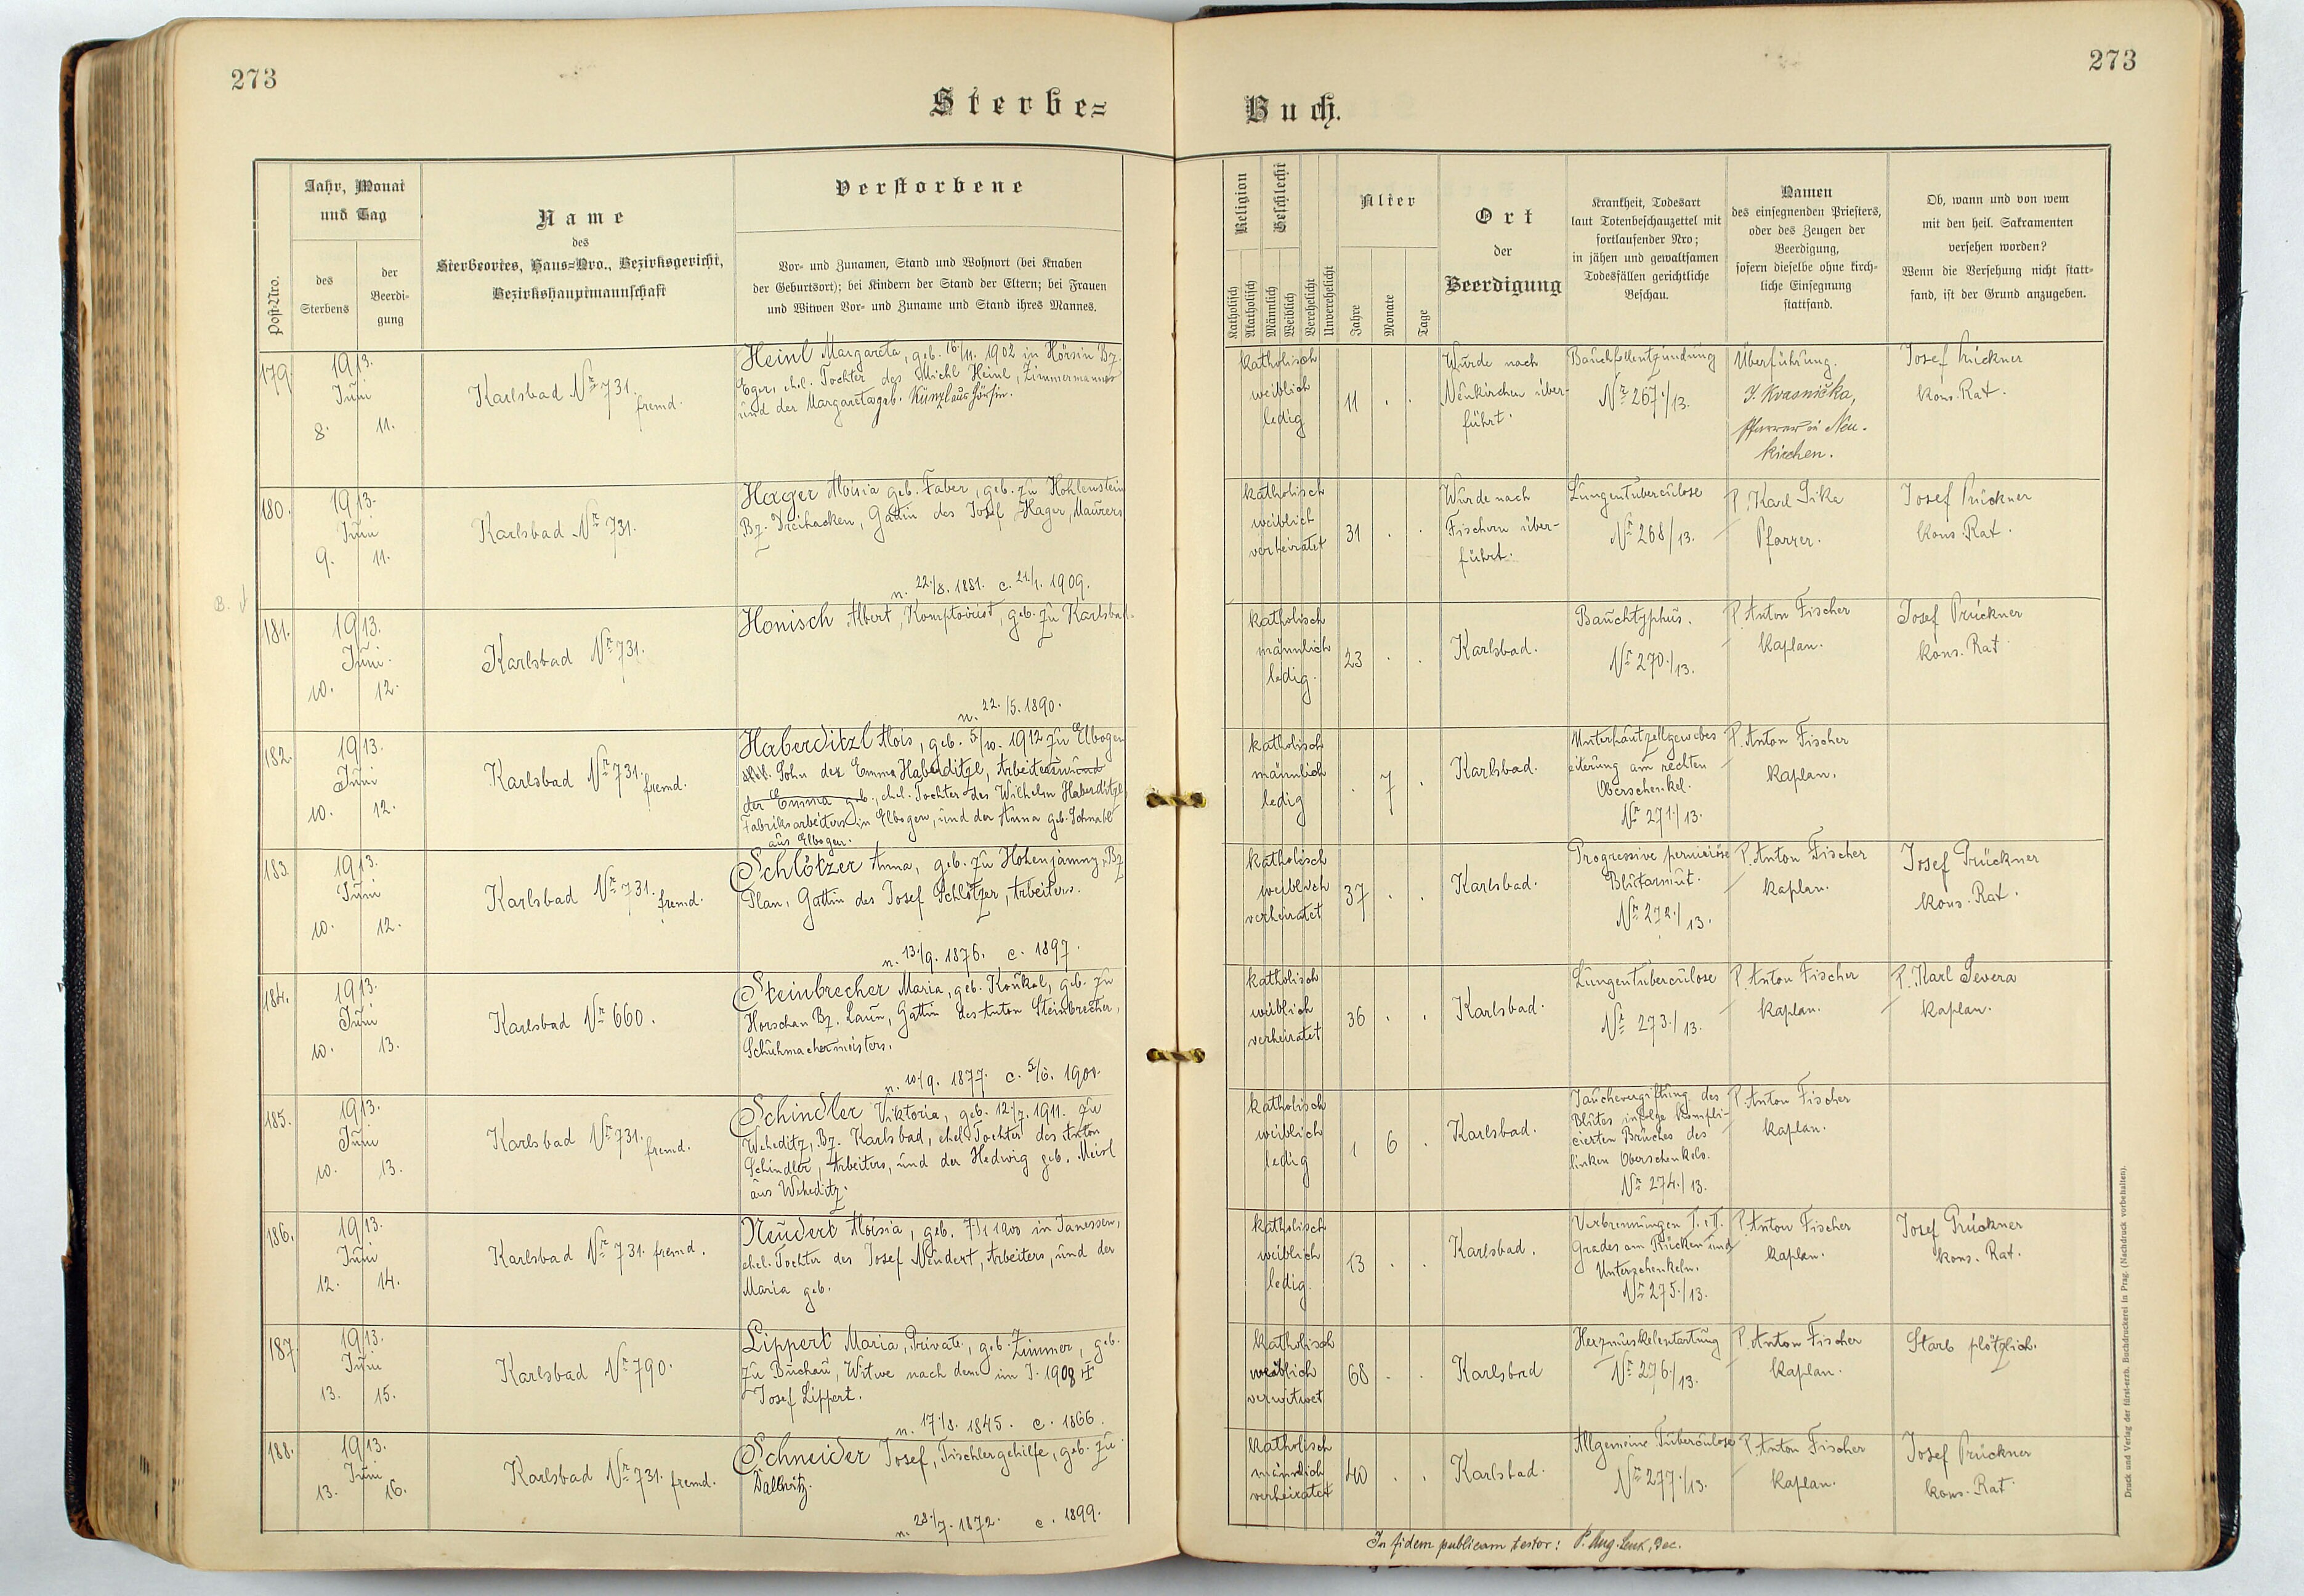 273
273
Sterbe=
Buch.
Post=Nro.
Jahr, Monat
und Tag
des
Sterbens
der
Beerdi=
gung
Name
des
Sterbeortes, Haus=Nro., Bezirksgericht,
Bezirkshauptmannschaft
Verstorbene
Vor= und Zunamen, Stand und Wohnort (bei Knaben
der Geburtsort); bei Kindern der Stand der Eltern; bei Frauen
und Witwen Vor= und Zuname und Stand ihres Mannes.
Religion
Katholisch
Akatholisch
Geschlecht
Männlich
Weiblich
Verehelicht
Unverehelicht
Alter
Jahre
Monate
Tage
Ort
der
Beerdigung
Krankheit, Todesart
laut Totenbeschauzettel mit
fortlaufender Nro;
in jähen und gewaltsamen
Todesfällen gerichtliche
Beschau.
Namen
des einsegnenden Priesters,
oder des Zeugen der
Beerdigung,
sofern dieselbe ohne kirch=
liche Einsegnung
stattfand.
Ob, wann und von wem
mit den heil. Sakramenten
versehen worden?
Wenn die Versehung nicht statt=
fand, ist der Grund anzugeben.
179.
1913.
Juni
8. 11.
Karlsbad Nr 731. fremd.
Heinl Margareta, geb. 16/11. 1902 in Hörsin Bz.
Eger, ehel. Tochter des Michl Heinl, Zimmermannes
und der Margareta geb. Künzl aus Hörsin.
katholisch
weiblich
ledig
11 . .
Wurde nach
Neukirchen über-
führt.
Bauchfellentzündung
Nr 267./13.
Überführung.
J. Kvasnička,
Pfarrer in Neu-
kirchen.
Josef Prückner
kons. Rat.
180.
1913.
Juni
9. 11.
Karlsbad Nr 731.
Hager Aloisia geb. Faber, geb. zu Hohlenstein
Bz. Dreihacken, Gattin des Josef Hager, Maurers
n. 22./8. 1881. c. 21/1. 1909.
katholisch
weiblich
verheiratet
31 . .
Wurde nach
Fischern über-
führt.
Lungentuberculose
Nr 268/13.
P. Karl Sika
Pfarrer.
Josef Prückner
kons. Rat.
B.
181.
1913.
Juni.
10. 12.
Karlsbad Nr 731.
Honisch Albert, Komptoirist, geb. zu Karlsbad.
n. 22. /5. 1890.
katholisch
männlich
ledig.
23 . .
Karlsbad.
Bauchtyphus.
Nr 270./13.
P. Anton Fischer
Kaplan.
Josef Prückner
kons. Rat
182.
1913.
Juni
10. 12.
Karlsbad Nr 731. fremd.
Haberditzl Alois, geb. 5/10. 1912 zu Elbogen
Sohn der Emma Haberditzl, Arbeiters und
der Emma geb., ehel. Tochter des Wilhelm Haberditzl
Fabriksarbeiters in Elbogen, und der Anna geb. Schnabl
aus Elbogen.
katholisch
männlich
ledig
. 7 .
Karlsbad.
Unterhautzellgewebes
eiterung am rechten
Oberschenkel.
Nr 271/13.
P. Anton Fischer
Kaplan.
183.
1913.
Juni
10. 12.
Karlsbad Nr 731. fremd.
Schlötzer Anna, geb. zu Hohenjamny, Bz
Plan, Gattin des Josef Schlötzer, Arbeiters.
n. 13./9. 1876. c. 1897.
katholisch
weiblich
verheiratet
37 . .
Karlsbad.
Progressive perniciöse
Blutarmut.
Nr 272./13.
P. Anton Fischer
Kaplan.
Josef Prückner
kons. Rat.
184.
1913.
Juni
10. 13.
Karlsbad Nr 660.
Steinbrecher Maria, geb. Koukal, geb. zu
Horschan Bz. Laun, Gattin des Anton Steinbrecher,
Schuhmachermeisters.
n. 10/9. 1877. c. 5/6. 1900.
katholisch
weiblich
verheiratet
36 . .
Karlsbad.
Lungentuberculose
Nr 273./13.
P. Anton Fischer
Kaplan.
P. Karl Severa
Kaplan.
185.
1913.
Juni
10. 13.
Karlsbad Nr 731. fremd.
Schindler Viktoria, geb. 12./7. 1911. zu
Weheditz, Bz. Karlsbad, ehel. Tochter des Anton
Schindler, Arbeiters, und der Hedwig geb. Meisl
aus Weheditz.
katholisch
weiblich
ledig
1 6 .
Karlsbad.
Jauchevergiftung des
Blutes infolge kompli-
cierten Bruches des
linken Oberschenkels.
Nr 274./13.
P. Anton Fischer
Kaplan.
186.
1913.
Juni
12. 14.
Karlsbad Nr 731. fremd.
Neudert Aloisia, geb. 7/1 1900 in Janessen,
ehel. Tochter des Josef Neudert, Arbeiters, und der
Maria geb.
katholisch
weiblich
ledig.
13 . .
Karlsbad.
Verbrennungen I. u. II.
Grades am Rücken und
Unterschenkeln.
Nr 275./13.
P. Anton Fischer
Kaplan.
Josef Prückner
kons. Rat.
187.
1913.
Juni
13. 15.
Karlsbad Nr 790.
Lippert Maria, Private, geb. Zimmer, geb.
zu Buchau, Witwe nach dem im J. 1908 †
Josef Lippert.
n. 17./8. 1845. c. 1866.
katholisch
weiblich
verwitwet
68 . .
Karlsbad
Herzmuskelentartung
Nr 276/13.
P. Anton Fischer
Kaplan.
Starb plötzlich.
188.
1913.
Juni
13. 16.
Karlsbad Nr 731. fremd.
Schneider Josef, Tischlergehilfe, geb. zu
Dallwitz.
n. 28./7. 1872. c. 1899.
katholisch
männlich
verheiratet
40 . .
Karlsbad.
Allgemeine Tuberculose
Nr 277./13.
P. Anton Fischer
Kaplan.
Josef Prückner
kons. Rat.
In fidem publicam testor: P. Aug. Lenk, Dec.
Druck und Verlag der fürst-erzb. Buchdruckerei in Prag. (Nachdruck vorbehalten).